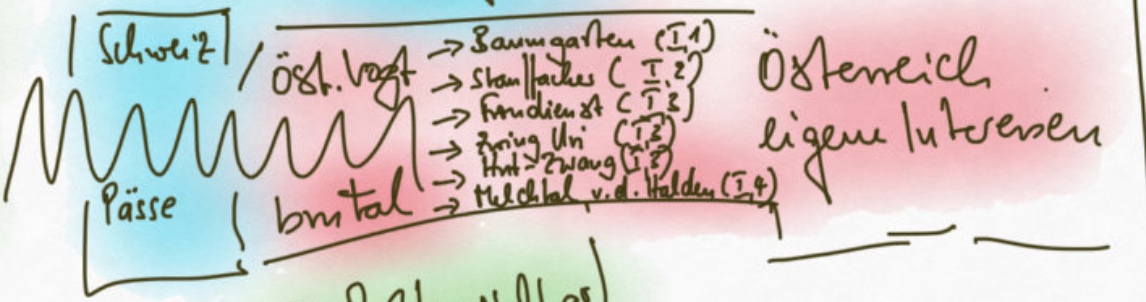 Schweiz
Pässe
öst. Vogt
brutal
→ Baumgarten (I,1)
→ Stauffacher (I,2)
→ Frondienst (I,3)
→ Zwing Uri (I,3)
Hut > Zwang (I,3)
→ Melchtal v.d. Halden (I,4)
Österreich
eigene Interessen